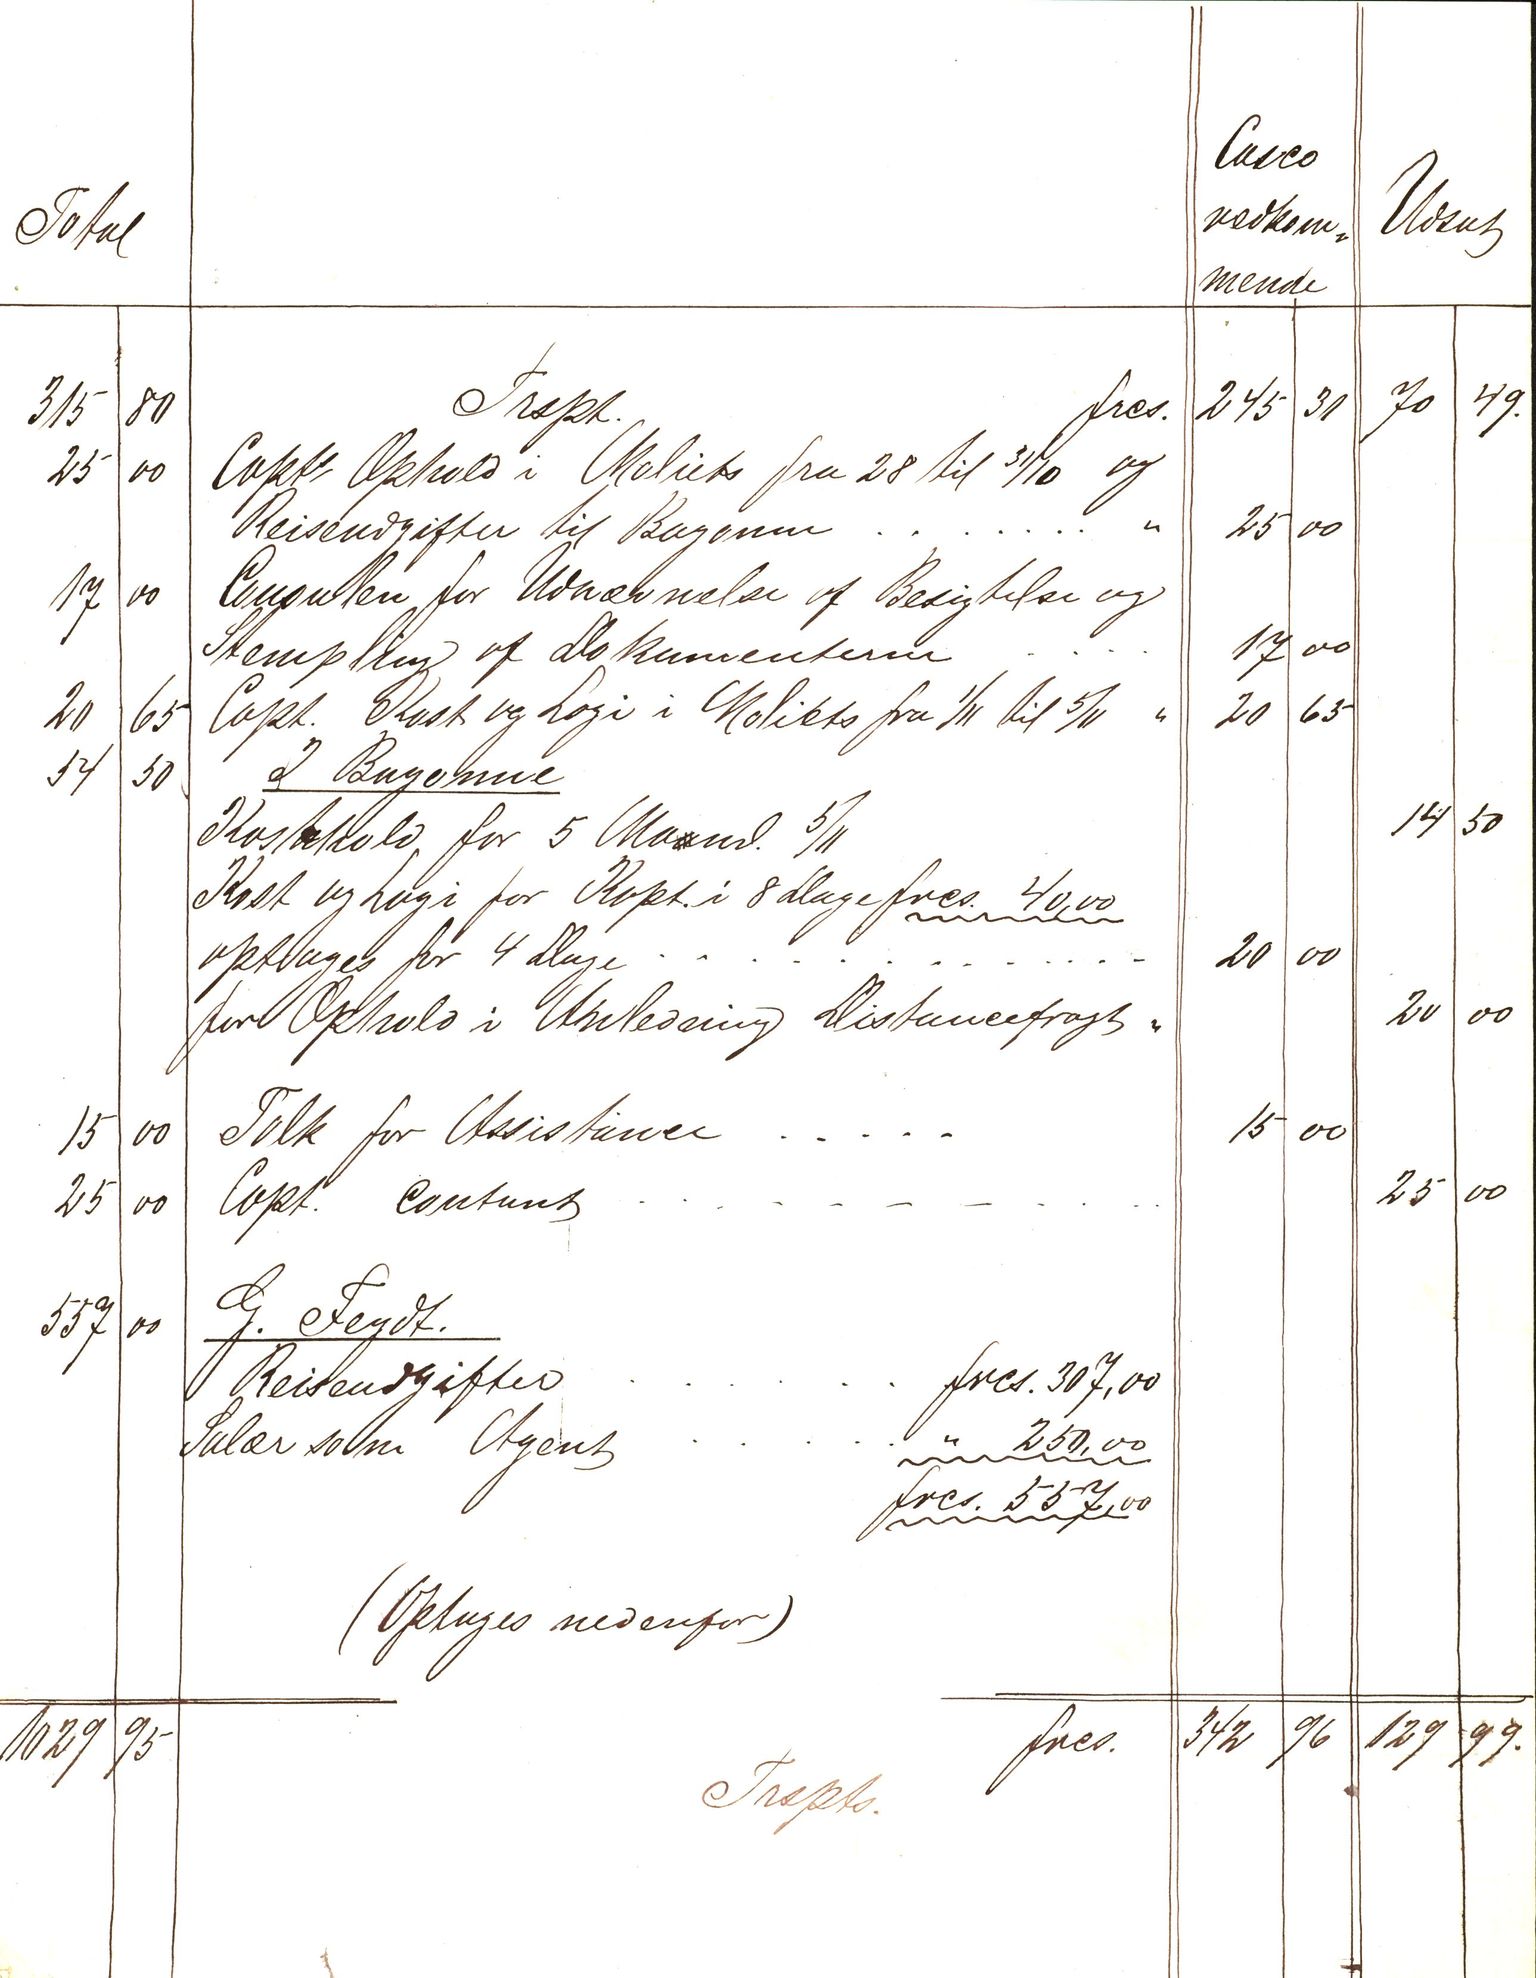 Casco
Total vedkom- Udsat
mende
315 80 Trspt. frcs. 245 31 70 49.
25 00 Capts Ophold i Moliets fra 28 til 31/10 og
Reiseudgifter til Bayonne . . . . . . . . " 25 00
17 00 Consulen for Udnævnelse af Besigtelse og
Stempling af Dokumenterne . . . . 17 00
20 65 Capt. Kost og Logi i Moliets fra 1/11 til 5/11 " 20 65
54 50 I Bayonne
Kosthold for 5 Mand. 5/11 14 50
Kost og Logi for Kapt. i 8 Dage frcs. 40,00
optages for 4 Dage . . . . . . . . . . . . . 20 00
for Ophold i Anledning Distancefragt " 20 00
15 00 Tolk for Assistance . . . . . 15 00
25 00 Capt. contant . . . . . . . . . . . 25 00
557 00 G. Feydt.
Reiseudgifter . . . . . . frcs. 307,00
Salær som Agent . . . . . " 250,00
frcs. 557,00
(Optages nedenfor)
1029 95 frcs. 342 96 129 99.
Trspts.